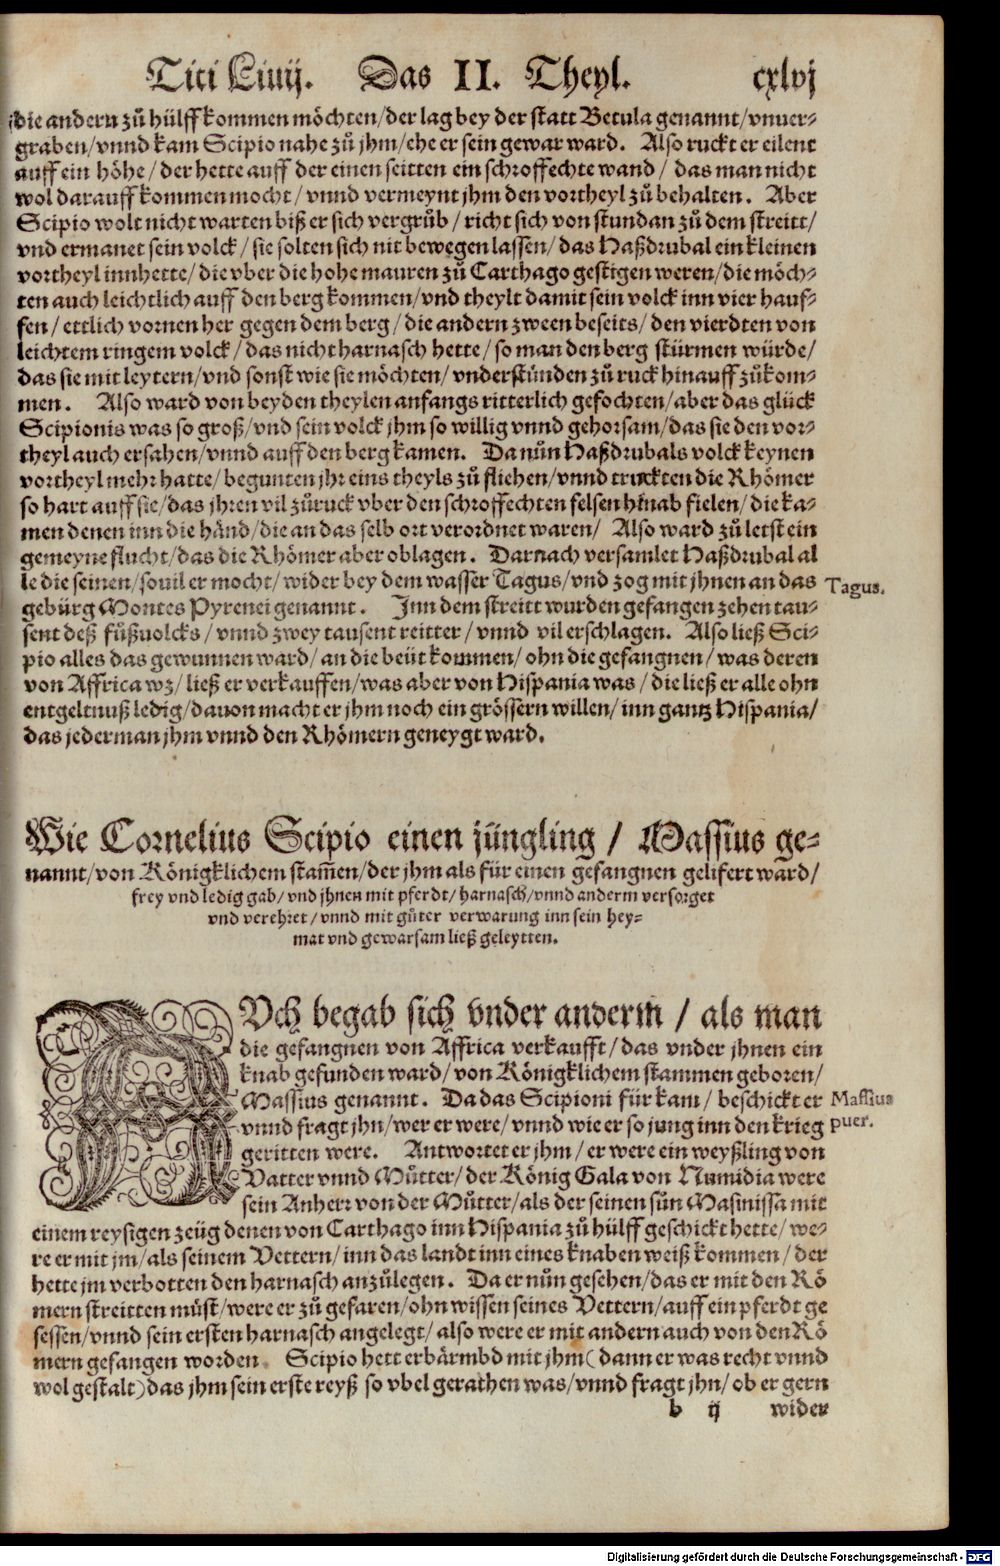 Titi Liuij. Das II. Theyl. cxlvj
die andern zů hülff kommen möchten/der lag bey der statt Betula genannt/vnuer-
graben/vnnd kam Scipio nahe zů jhm/ehe er sein gewar ward. Also ruckt er eilent
auff ein höhe/der hette auff der einen seitten ein schroffechte wand/das man nicht
wol darauff kommen mocht/vnnd vermeynt jhm den vortheyl zů behalten. Aber
Scipio wolt nicht warten biß er sich vergrůb/richt sich von stundan zů dem streitt/
vnd ermanet sein volck/sie solten sich nit bewegen lassen/das Haßdrubal ein kleinen
vortheyl innhette/die vber die hohe mauren zů Carthago gestigen weren/die möch-
ten auch leichtlich auff den berg kommen/vnd theylt damit sein volck inn vier hauf-
fen/ettlich vornen her gegen dem berg/die andern zween beseits/den vierdten von
leichtem ringem volck/das nicht harnasch hette/so man den berg stürmen würde/
das sie mit leytern/vnd sonst wie sie möchten/vnderstünden zů ruck hinauff zůkom-
men. Also ward von beyden theylen anfangs ritterlich gefochten/aber das glück
Scipionis was so groß/vnd sein volck jhm so willig vnnd gehorsam/das sie den vor-
theyl auch ersahen/vnnd auff den berg kamen. Da nůn Haßdrubals volck keynen
vortheyl mehr hatte/begunten jhr eins theyls zů fliehen/vnnd truckten die Rhömer
so hart auff sie/das jhren vil zůruck vber den schroffechten felsen hinab fielen/die ka-
men denen inn die händ/die an das selb ort verordnet waren/ Also ward zů letst ein
gemeyne flucht/das die Rhömer aber oblagen. Darnach versamlet Haßdrubal al
le die seinen/souil er mocht/wider bey dem wasser Tagus/vnd zog mit jhnen an das
Tagus.
gebürg Montes Pyrenei genannt. Inn dem streitt wurden gefangen zehen tau-
sent deß fůßuolcks/vnnd zwey tausent reitter/vnnd vil erschlagen. Also ließ Sci-
pio alles das gewunnen ward/an die beüt kommen/ohn die gefangnen/was deren
von Affrica wz/ließ er verkauffen/was aber von Hispania was/die ließ er alle ohn
entgeltnuß ledig/dauon macht er jhm noch ein grössern willen/inn gantz Hispania/
das jederman jhm vnnd den Rhömern geneygt ward.
Wie Cornelius Scipio einen jüngling/Massius ge-
nannt/von Königklichem stam̃en/der jhm als für einen gefangnen gelifert ward/
frey vnd ledig gab/vnd jhnen mit pferdt/harnasch/vnnd anderm versorget
vnd verehret/vnnd mit gůter verwarung inn sein hey-
mat vnd gewarsam ließ geleytten.
AVch begab sich vnder anderm/als man
die gefangnen von Affrica verkaufft/das vnder jhnen ein
knab gefunden ward/von Königklichem stammen geboren/
Massius genannt. Da das Scipioni für kam/beschickt er
Massius
puer.
vnnd fragt jhn/wer er were/vnnd wie er so jung inn den krieg
geritten were. Antwortet er jhm/er were ein weyßling von
Vatter vnnd Můtter/der König Gala von Numidia were
sein Anherr von der Můtter/als der seinen sůn Masinissa mit
einem reysigen zeüg denen von Carthago inn Hispania zů hülff geschickt hette/we-
re er mit jm/als seinem Vettern/inn das landt inn eines knaben weiß kommen/der
hette jm verbotten den harnasch anzůlegen. Da er nůn gesehen/das er mit den Rö
mern streitten müst/were er zů gefaren/ohn wissen seines Vettern/auff ein pferdt ge
sessen/vnnd sein ersten harnasch angelegt/also were er mit andern auch von den Rö
mern gefangen worden. Scipio hett erbärmbd mit jhm(dann er was recht vnnd
wol gestalt)das jhm sein erste reyß so vbel gerathen was/vnnd fragt jhn/ob er gern
b ij wider
Digitalisierung gefördert durch die Deutsche Forschungsgemeinschaft - DFG